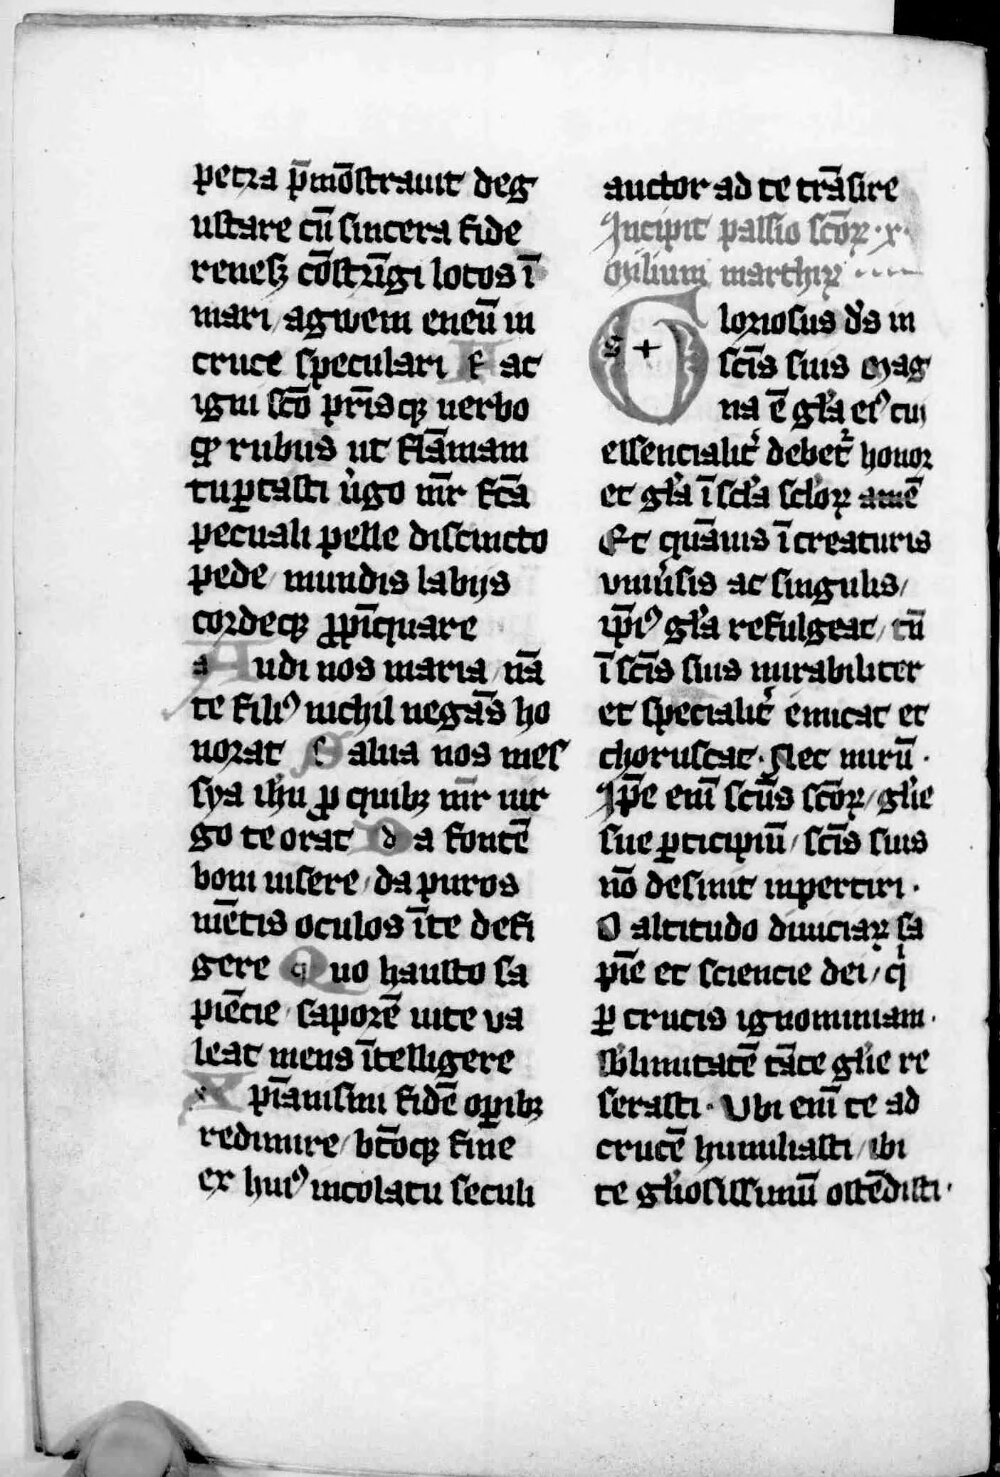 petra p̄mōstrauit deg
ustare cū sincera fide
renesꝫ cōstrīgi lotos ī
mari / agwem eneū in
cruce speculari F ac
igni scō pr̄isqꝫ uerbo
qꝫ rubus ut flāmam
tu portasti u̓go mr̄ fc̄a
pecuali pelle discincto
pede / mundis labijs
cordeqꝫ ꝓpīquare
Audi nos maria / nā
te filiꝰ nichil negās ho
norat Salua nos mes
sya ihu ꝓ quibꝫ mr̄ uir
go te orat Da fontē
boni uisere / da puros
mētis oculos īte defi
gere Quo hausto sa
piēcie / saporē uite va
leat mens ītelligere
Xp̄ianismi fidē oꝑibꝫ
redimire / btōqꝫ fine
ex huiꝰ incolatu seculi
auctor ad te trāsire
Incipit passio scōꝝ · x ·
milium martirꝝ ····
Gloriosus ds̄ in
scīs suis Mag
na ē gl̓a eiꝰ cui
essencialit̓ debet̓ honor
et gl̓a ī scl̓a scl̓oꝝ amē
Et quāuis ī creaturis
vniu̓sis ac singulis /
ip̄iꝰ gl̓a refulgeat / tū
ī scīs suis mirabiliter
et specialit̓ emicat et
choruscat · Nec mirū ·
Ip̄e enī scūs scōꝝ / gl̓ie
sue ꝑticipiū / scīs suis
nō desinit inpertiri ·
O altitudo diuiciaꝝ sa
pīe et sciencie dei / qͥ
ꝑ crucis ignominiam ·
sublimitatē tāte gl̓ie re
serasti · Vbi enī te ad
crucē humiliasti / ibi
te gl̓iosissimū ostēdisti ·